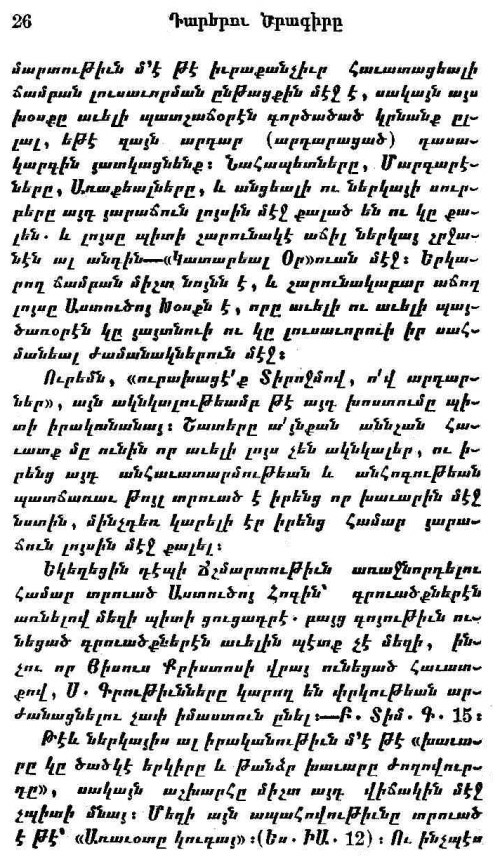 26 Դարերու Ծրագիրը
մարտութիւն մ՚է թէ իւրաքանչիւր Հաւատացեալի
ճամբան լուսաւորման ընթացքին մէջ է, սակայն այս
խօսքը աւելի պատշաճօրէն գործածած կրնանք ըլ-
լալ, եթէ զայն արդար (արդարացած) դասա-
կարգին յատկացնենք։ Նահապետները, Մարգարէ-
ները, Առաքեալները, և անցեալի ու ներկայի սուր-
բերը այդ յարաճուն լոյսին մէջ քալած են ու կը քա-
լեն. և լոյսը պիտի շարունակէ աճիլ ներկայ շրջա-
նէն ալ անդին—«Կատարեալ Օր»ուան մէջ։ Երկա-
րող ճամբան միշտ նոյնն է, և շարունակաբար աճող
լոյսը Աստուծոյ Խօսքն է, որը աւելի ու աւելի պայ-
ծառօրէն կը յայտնուի ու կը լուսաւորուի իր սահ-
մանեալ ժամանակներուն մէջ։
Ուրեմն, «ուրախացէ՛ք Տիրոջմով, ո՛վ արդար-
ներ», այն ակնկալութեամբ թէ այդ խոստումը պի-
տի իրականանայ։ Շատերը ա՛յնքան աննշան Հա-
ւատք մը ունին որ աւելի լոյս չեն ակնկալեր, ու ի-
րենց այդ անհաւատարմութեան և անհոգութեան
պատճառաւ թոյլ տրուած է իրենց որ խաւարին մէջ
նստին, մինչդեռ կարելի էր իրենց համար յարա-
ճուն լոյսին մէջ քալել։
Եկեղեցին դէպի Ճշմարտութիւն առաջնորդելու
համար տրուած Աստուծոյ Հոգին՝ գրուածքներէն
առնելով մեզի պիտի ցուցադրէ. բայց գոյութիւն ու-
նեցած գրուածքներէն աւելին պէտք չէ մեզի, ին-
չու որ Յիսուս Քրիստոսի վրայ ունեցած Հաւատ-
քով, Ս. Գրութիւնները կարող են փրկութեան ար-
ժանացնելու չափ իմաստուն ընել։—Բ. Տիմ. Գ. 15։
Թէև ներկայիս ալ իրականութիւն մ՚է թէ «խաւա-
րը կը ծածկէ երկիրը և թանձր խաւարը ժողովուր-
դը», սակայն աշխարհը միշտ այդ վիճակին մէջ
չպիտի մնայ։ Մեզի այն ապահովութիւնը տրուած
է թէ՝ «Առաւօտը կուգայ»։(Ես. ԻԱ. 12)։ Ու ինչպէս